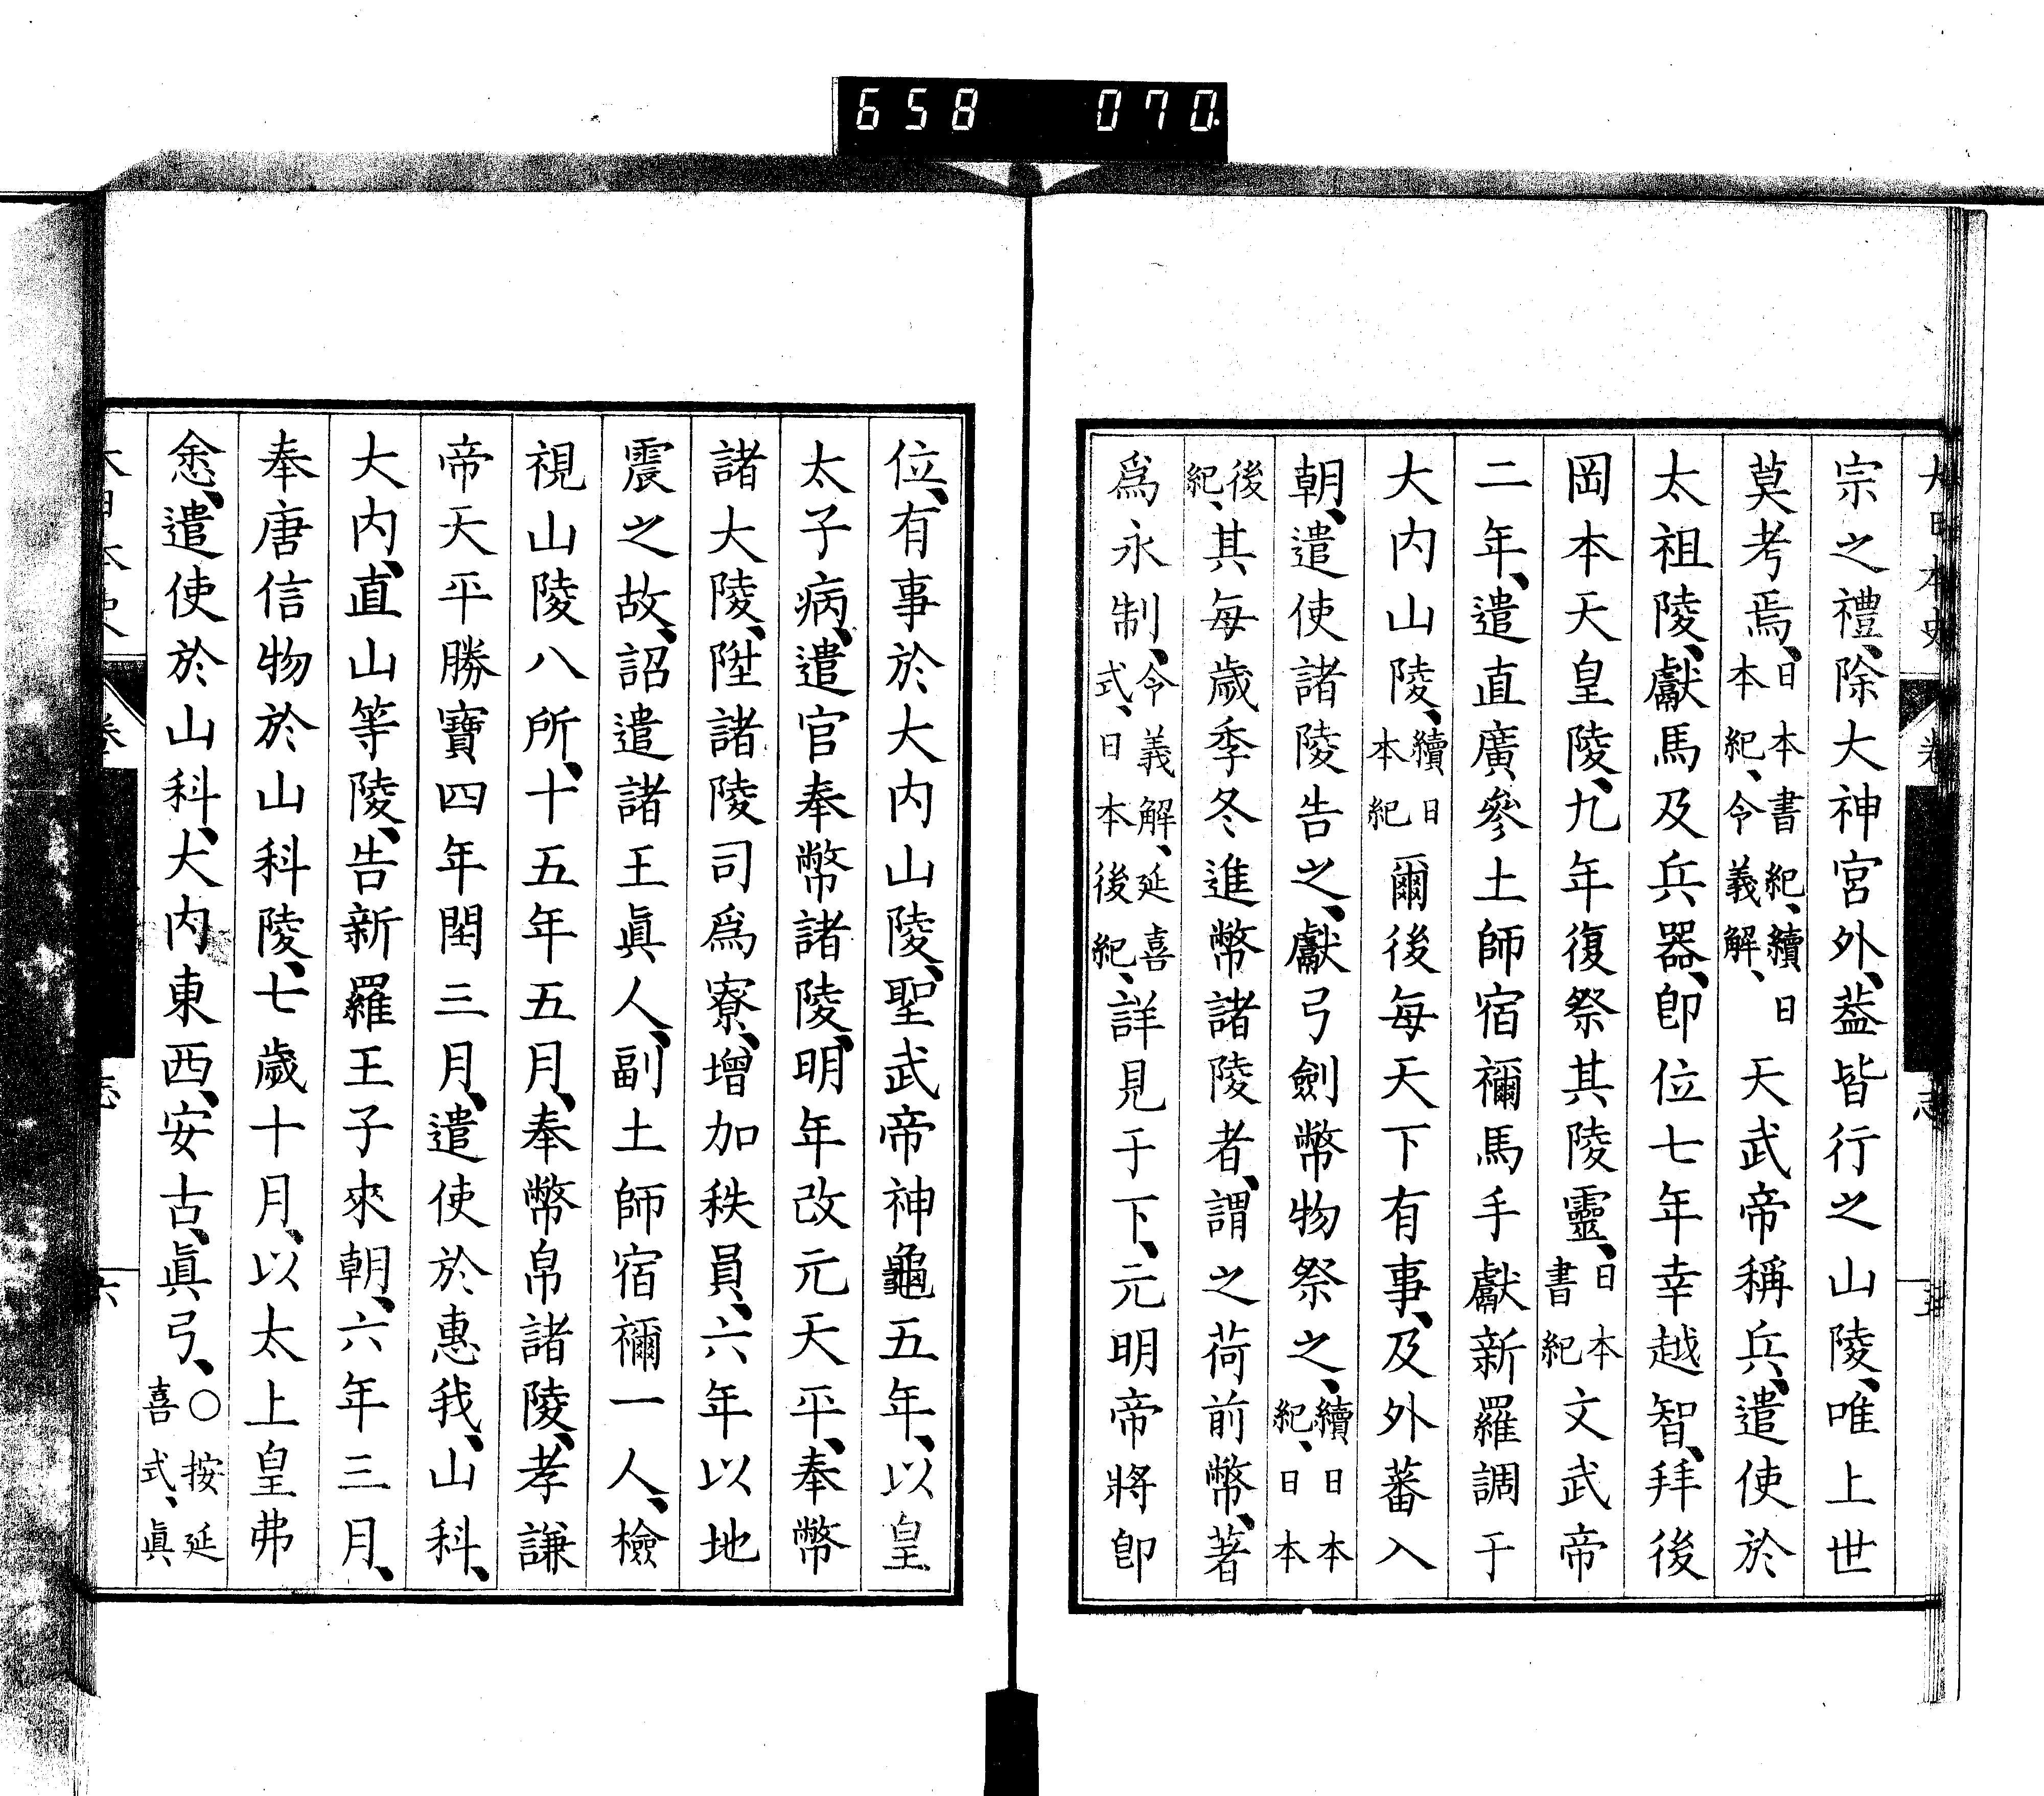 658 070
大日本史 卷 志 五
宗之禮、除大神宮外、葢皆行之山陵、唯上世
莫考焉、日本書紀、續日本紀、令義解、天武帝稱兵、遣使於
太祖陵、獻馬及兵器、卽位七年幸越智、拜後
岡本天皇陵、九年復祭其陵靈、日本書紀文武帝
二年、遣直廣參土師宿禰馬手獻新羅調于
大内山陵、續日本紀爾後每天下有事、及外蕃入
朝、遣使諸陵告之、獻弓劍幣物祭之、續日本紀、日本
後紀、其每歲季冬進幣諸陵者、謂之荷前幣、著
爲永制、令義解、延喜式、日本後紀、詳見于下、元明帝將卽
位、有事於大内山陵、聖武帝神龜五年、以皇
太子病、遣官奉幣諸陵、明年改元天平、奉幣
諸大陵、陞諸陵司爲寮、增加秩員、六年以地
震之故、詔遣諸王眞人、副土師宿禰一人、檢
視山陵八所、十五年五月、奉幣帛諸陵、孝謙
帝天平勝寶四年閏三月、遣使於惠我、山科、
大内、直山等陵、告新羅王子來朝、六年三月、
奉唐信物於山科陵、七歲十月、以太上皇弗
悆、遣使於山科、大内東西、安古、眞弓、○按延喜式、眞
大日本史 卷 志 六